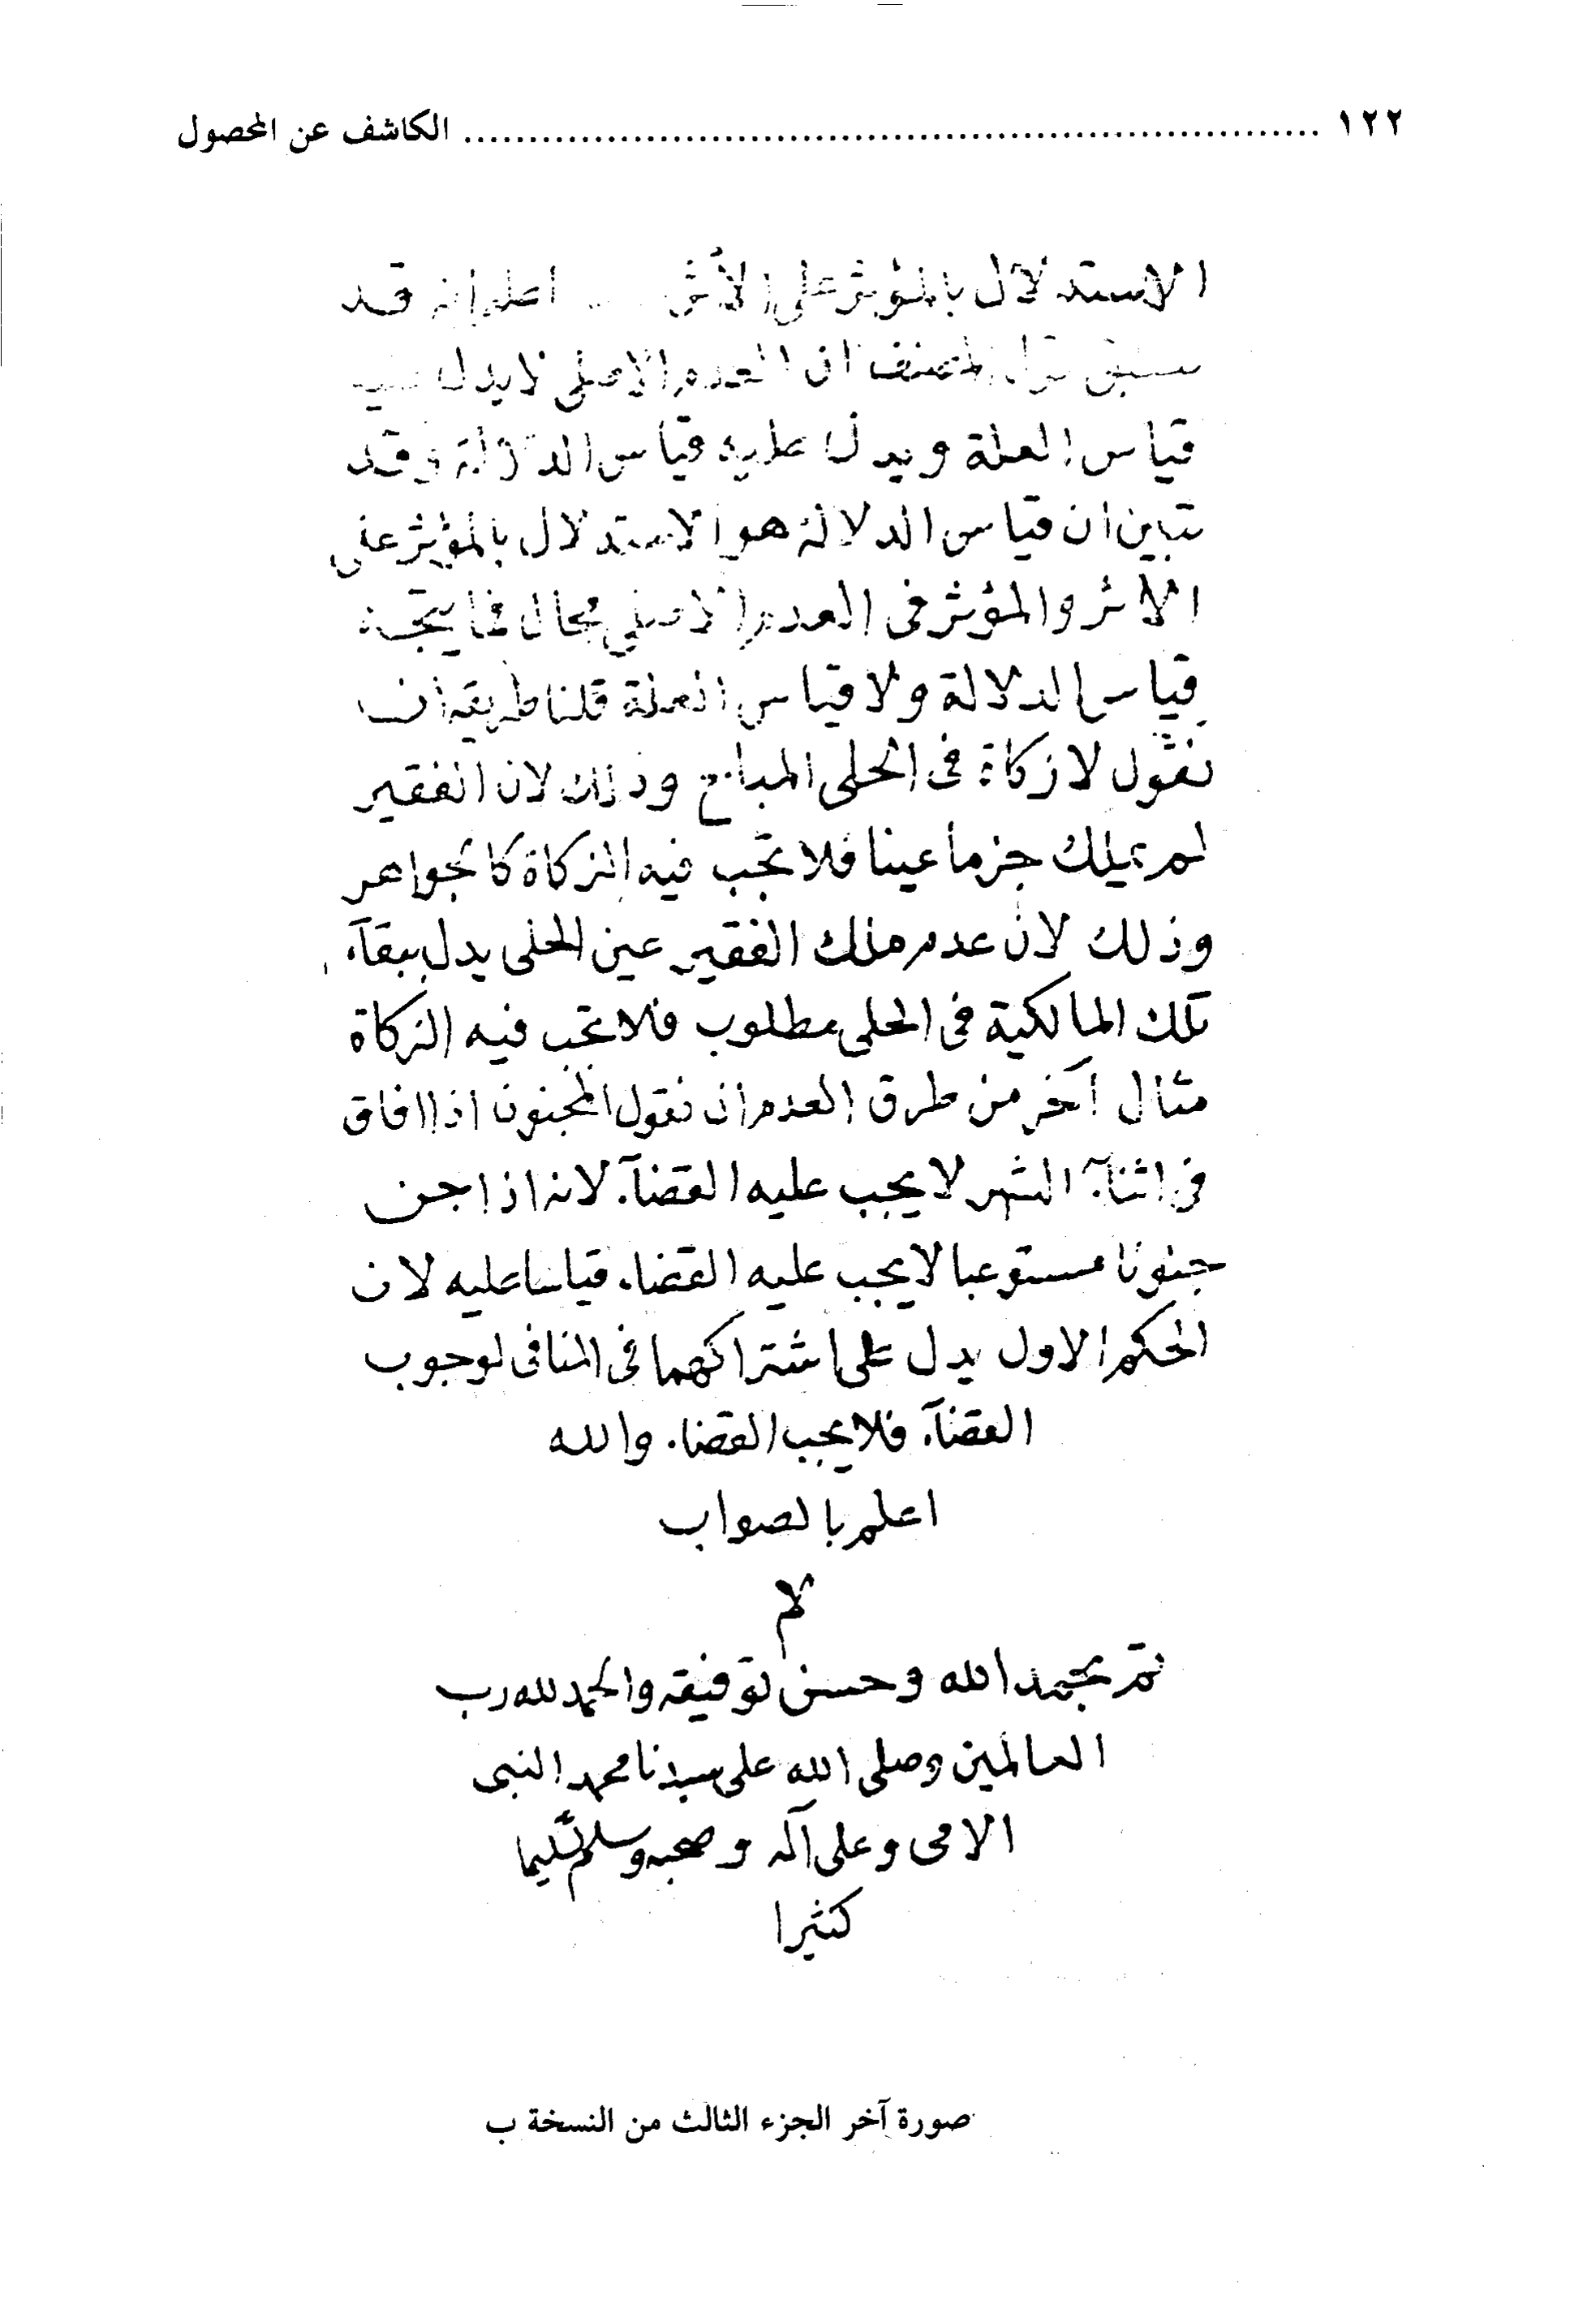 ١٢٢ ........ الكاشف عن المحصول
الاستدلال بالمؤثر على الأثر اعلم انه قد
سبق قول المصنف ان العدم الاصلى لا يدل
قياس العلة ويدل عليه قياس الدلالة وقد
تبين ان قياس الدلالة هو الاستدلال بالمؤثر على
الاثر والمؤثر فى العدم الاصلى محال فما يتجه
قياس الدلالة ولا قياس العلة قلنا طريقه ان
نقول لا زكاة فى الحلى المباح وذلك لان الفقير
لم يملك جزما عينا فلا تجب فيه الزكاة كالجواهر
وذلك لان عدم ملك الفقير عين الحلى يدل ببقآء
تلك المالكية فى الحلى مطلوب فلا تجب فيه الزكاة
مثال آخر من طرق العدم ان نقول المجنون اذا افاق
فى اثنآء الشهر لا يجب عليه القضآء لانه اذا جن
جنونا مستوعبا لا يجب عليه القضاء قياسا عليه لان
الحكم الاول يدل على اشتراكهما فى المنافى لوجوب
القضآء فلا يجب القضاء والله
اعلم بالصواب
تم بحمد الله وحسن توفيقه والحمد لله رب
العالمين وصلى الله على سيدنا محمد النبى
الامى وعلى آله وصحبه وسلم تسليما
كثيرا
صورة آخر الجزء الثالث من النسخة ب